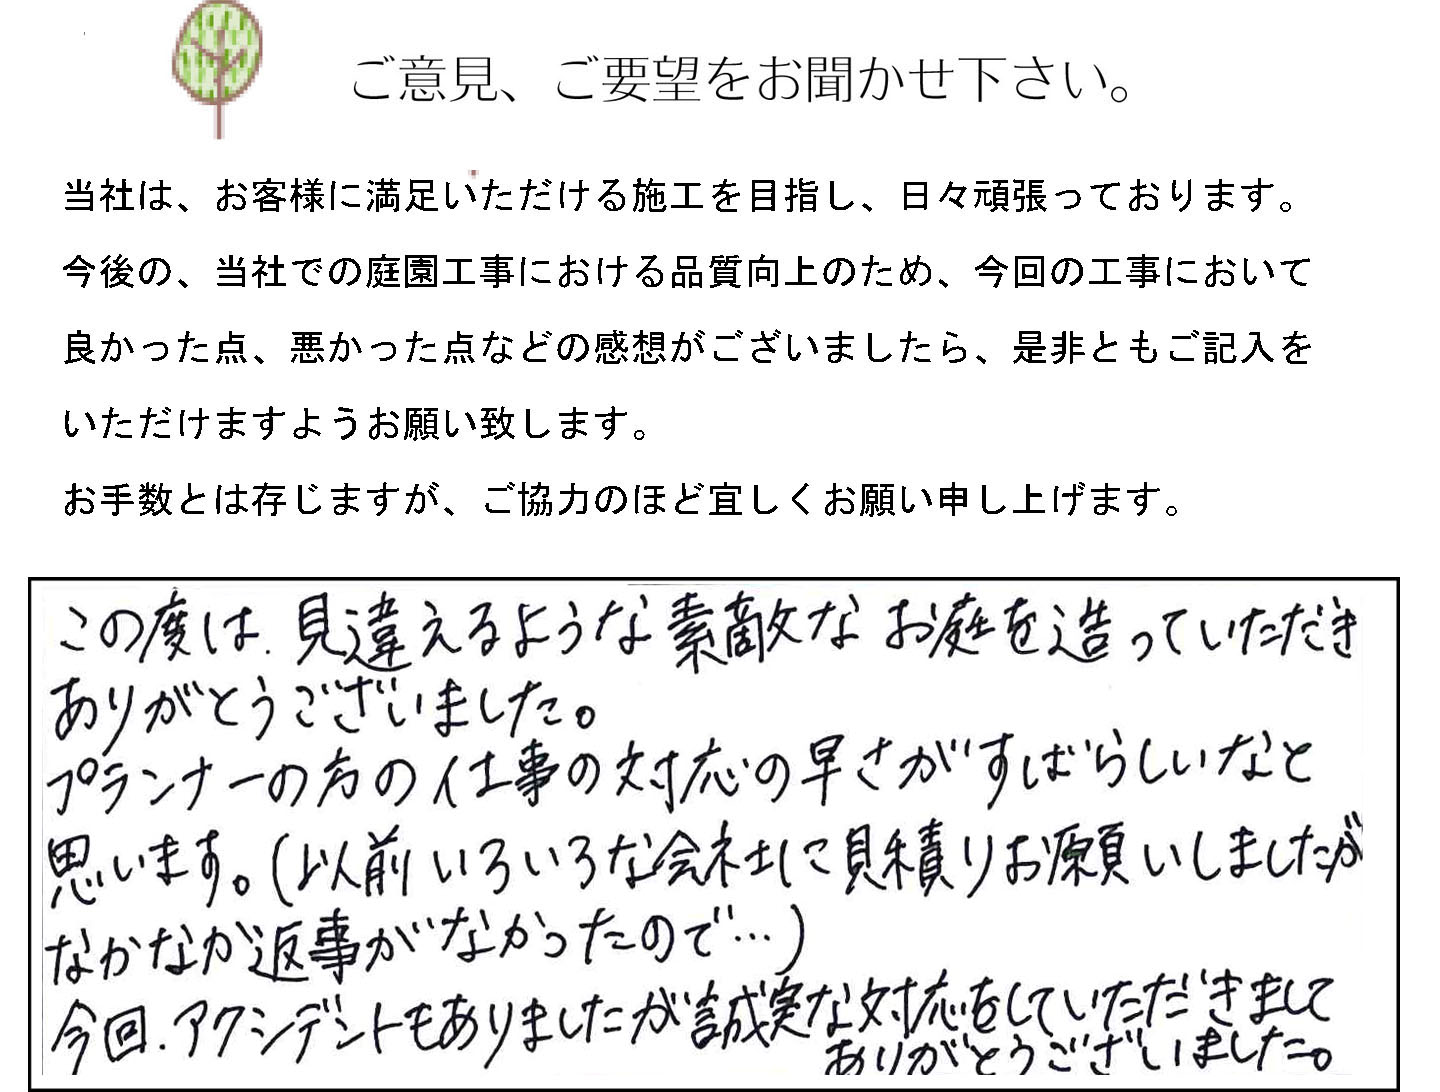 ご意見、ご要望をお聞かせ下さい。
当社は、お客様に満足いただける施工を目指し、日々頑張っております。
今後の、当社での庭園工事における品質向上のため、今回の工事において
良かった点、悪かった点などの感想がございましたら、是非ともご記入を
いただけますようお願い致します。
お手数とは存じますが、ご協力のほど宜しくお願い申し上げます。
この度は、見違えるような素敵なお庭を造っていただき
ありがとうございました。
プランナーの方の仕事の対応の早さがすばらしいなと
思います。(以前いろいろな会社に見積りお願いしましたが
なかなか返事がなかったので…)
今回、アクシデントもありましたが誠実な対応をしていただきまして
ありがとうございました。